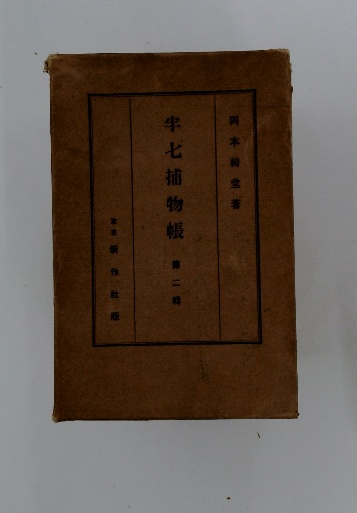 岡本綺堂著
半七捕物帳 第二輯
東京 新作社版